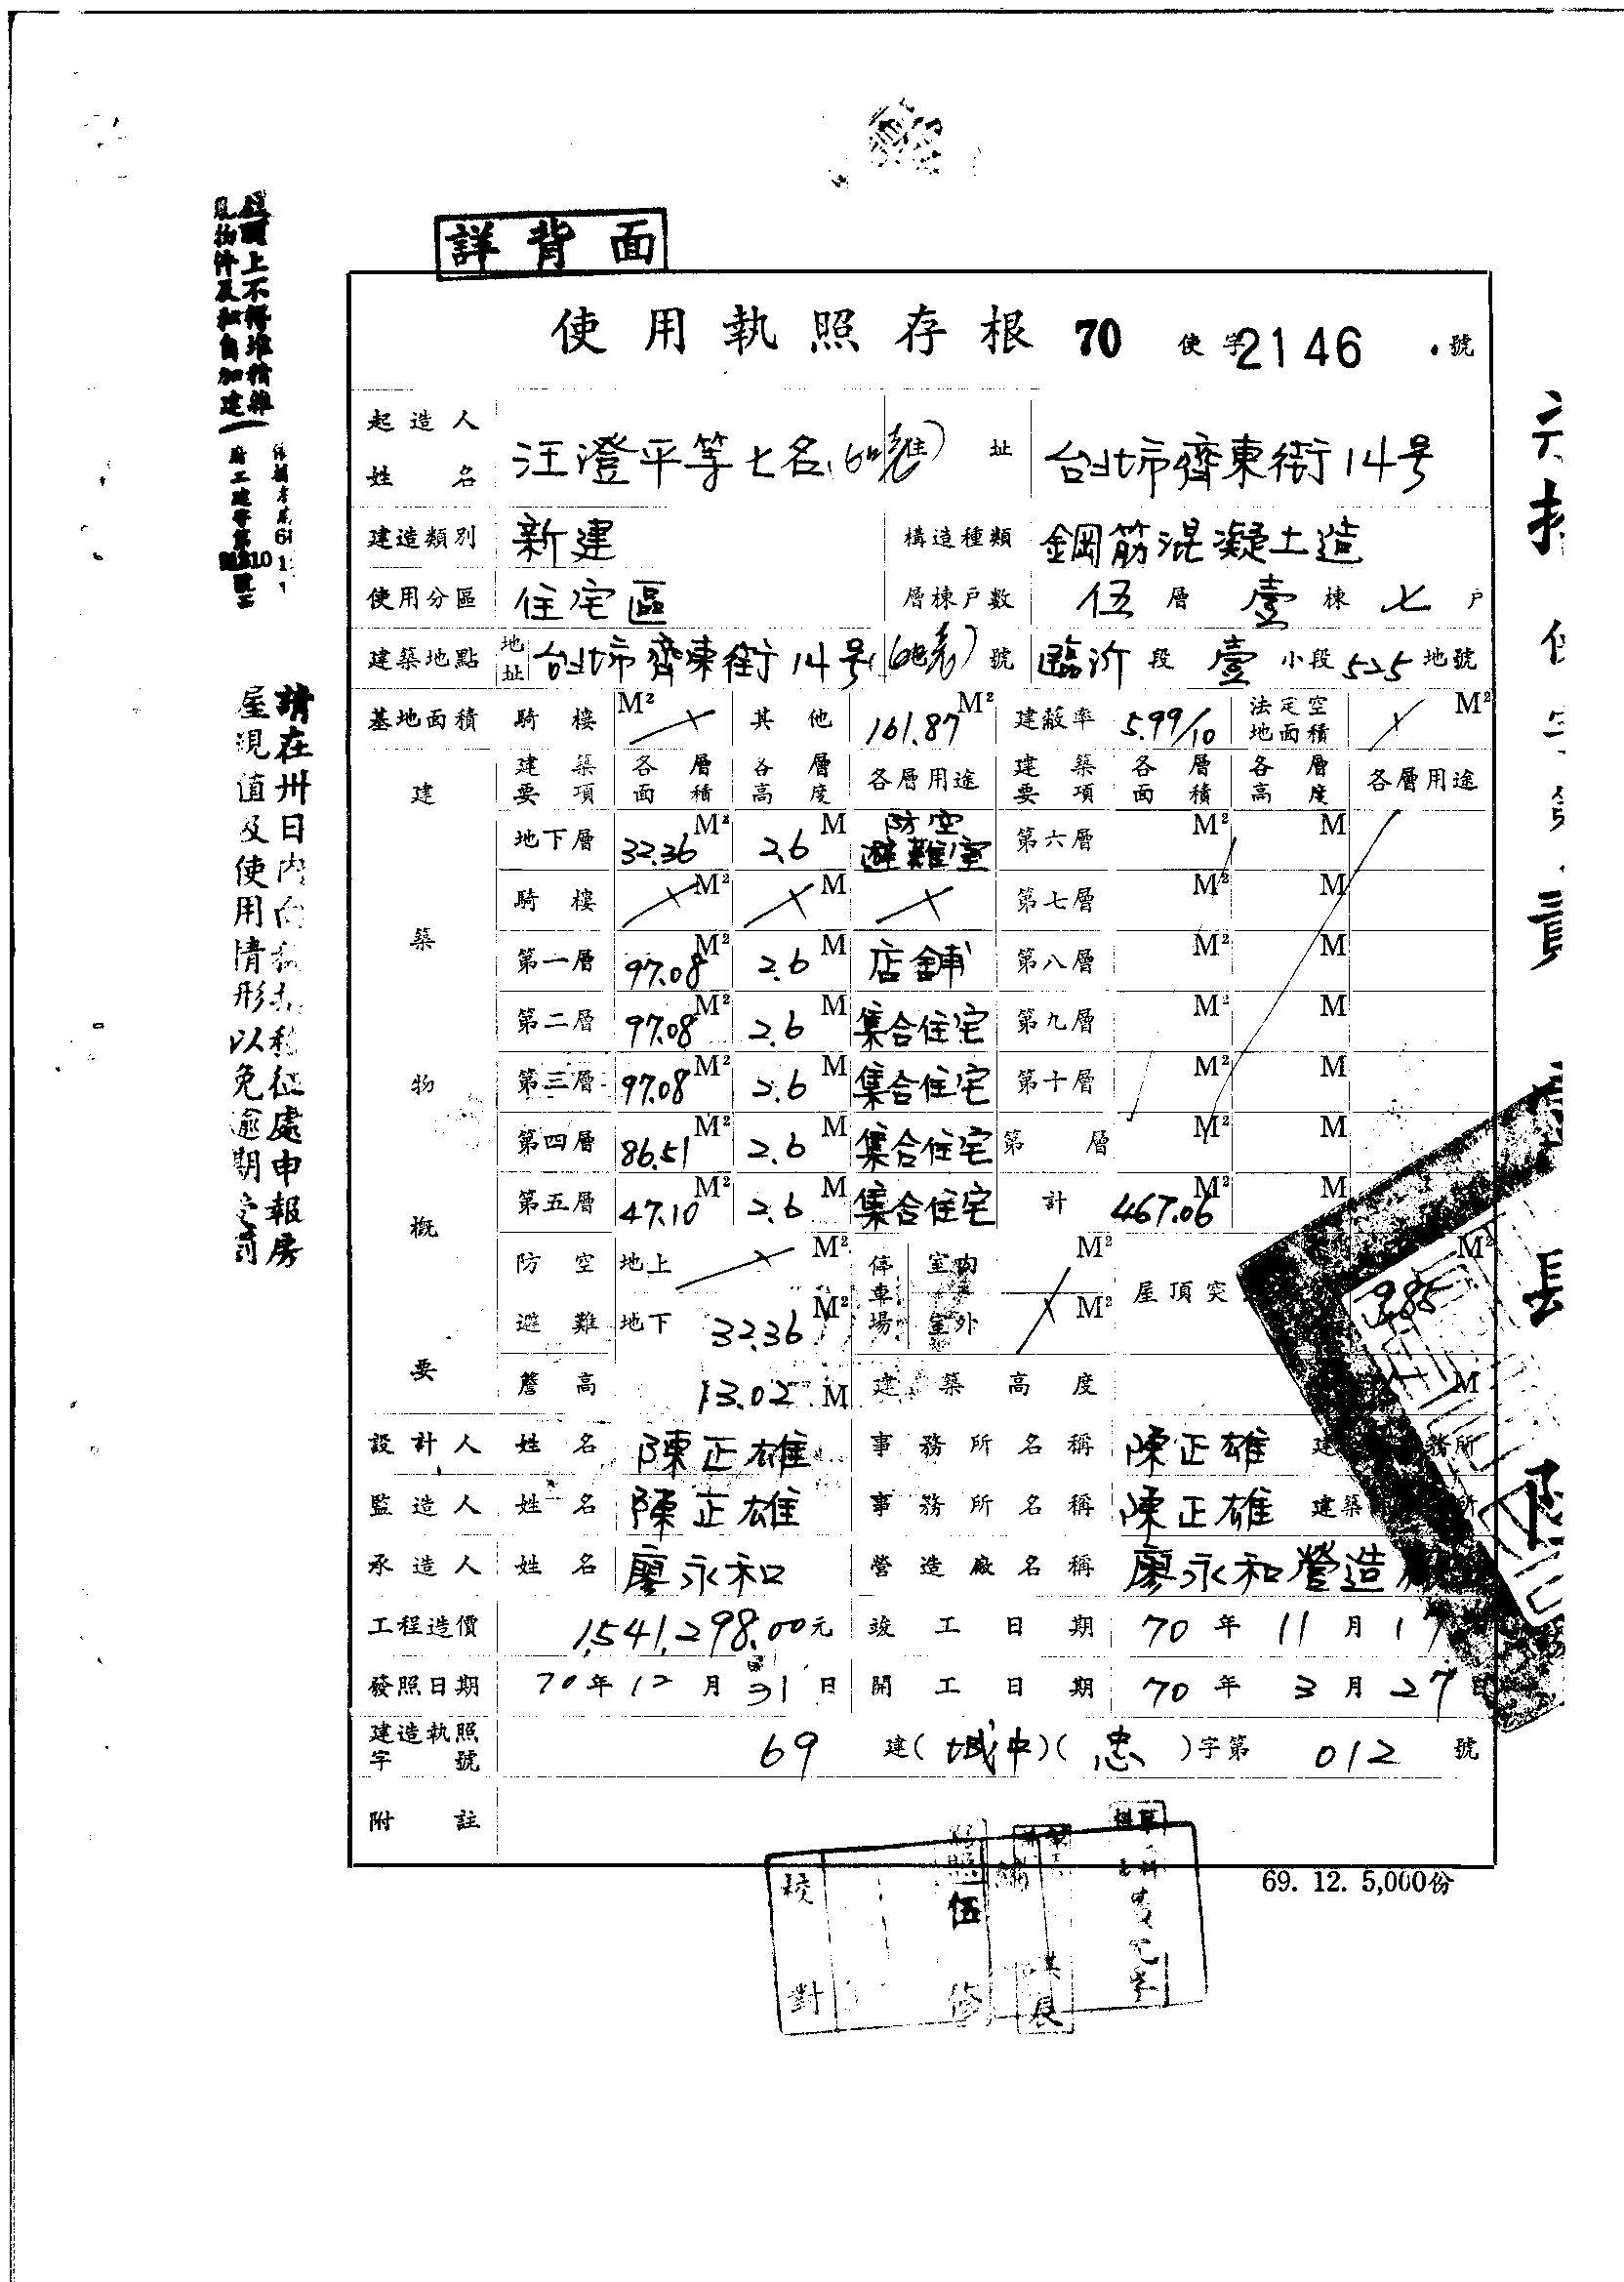 詳背面
使用執照存根 70 使字2146號
起造人姓名 汪澄平等七名 住址 台北市齊東街14号
建造類別 新建 構造種類 鋼筋混凝土造
使用分區 住宅區 層棟戶數 伍層壹棟七戶
建築地點 地址 台北市齊東街14号 號 臨沂段壹小段525地號
基地面積 騎樓 M² 其他 161.87 M² 建蔽率 5.99/10 法定空地面積 M²
建築物概要
建築要項 各層面積 各層高度 各層用途 建築要項 各層面積 各層高度 各層用途
地下層 32.36 M² 2.6 M 防空避難室 第六層 M² M
騎樓 M² M 第七層 M² M
第一層 97.08 M² 2.6 M 店舖 第八層 M² M
第二層 97.08 M² 2.6 M 集合住宅 第九層 M² M
第三層 97.08 M² 2.6 M 集合住宅 第十層 M² M
第四層 86.51 M² 2.6 M 集合住宅 第 層 M² M
第五層 47.10 M² 2.6 M 集合住宅 計 467.06 M² M
防空避難 地上 M² 停車場 室內 M² 屋頂突 M²
地下 32.36 M² 室外 M²
簷高 13.02 M 建築高度 M
設計人 姓名 陳正雄 事務所名稱 陳正雄 建 務所
監造人 姓名 陳正雄 事務所名稱 陳正雄 建築 所
承造人 姓名 廖永和 營造廠名稱 廖永和營造
工程造價 1,541,298.00元 竣工日期 70年11月1
發照日期 70年12月31日 開工日期 70年3月27日
建造執照字號 69 建(城中)(忠)字第012號
附註
69. 12. 5,000份
校對
伍
上不得堆積雜
物件及私自加建
請在卅日內向 稅征處申報房
屋現值及使用情形以免逾期受罰